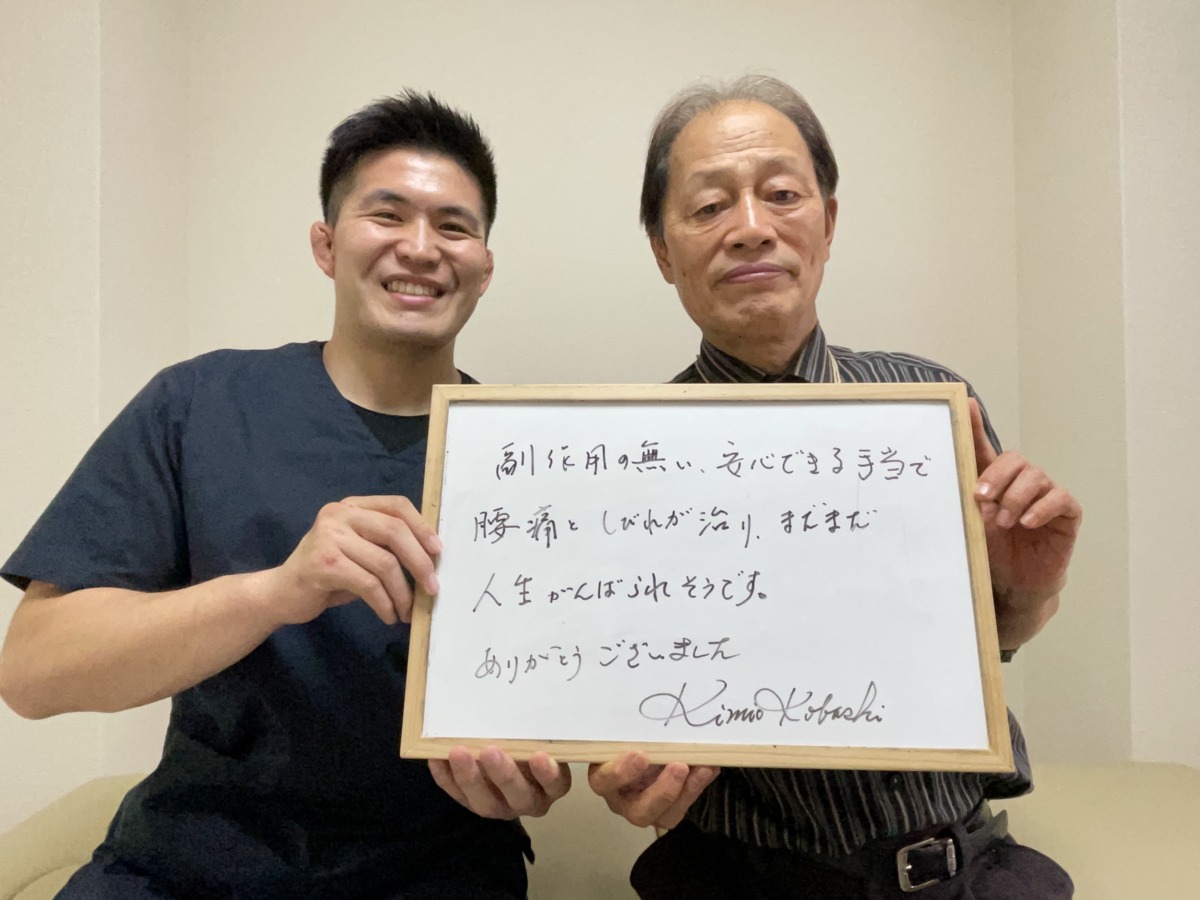 副作用の無い、安心できる手当で
腰痛としびれが治り、まだまだ
人生がんばられそうです。
ありがとうございました
Kimio Kobashi